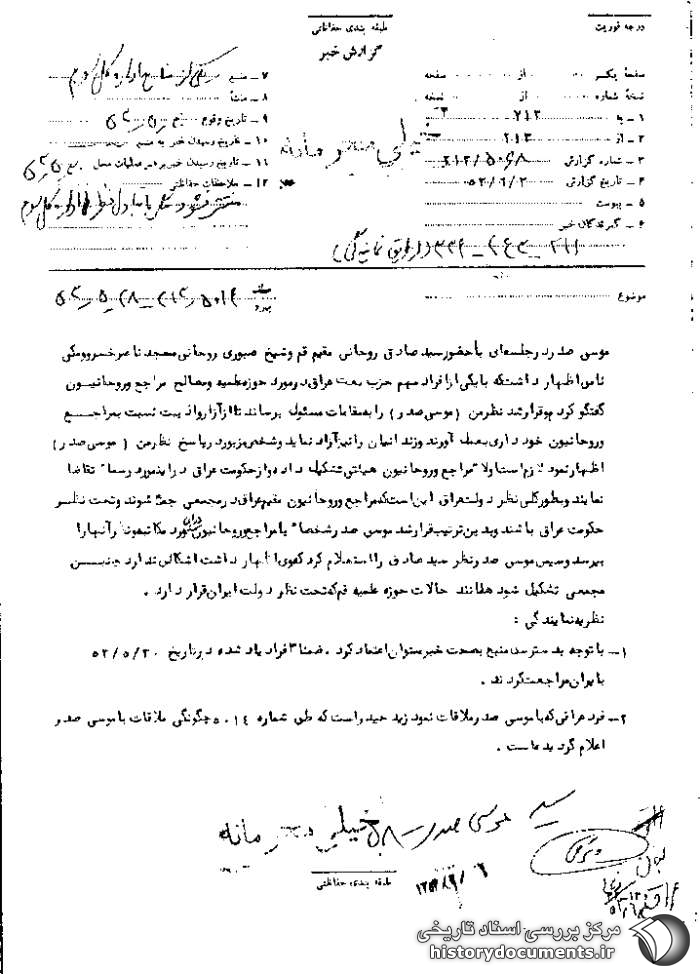 درجه فوریت
طبقه بندی حفاظتی
گزارش خبر
صفحهٔ یکم از صفحه
نسخهٔ شماره از نسخه
۱ – به ۷۱۲
۲ – از ۲۱۳
۳ – شماره گزارش ۲۱۲/۵۰۶۸
۴ – تاریخ گزارش ۵۲/۶/۲
۵ – پیوست
۶ – گیرندگان خبر
۷ – منبع
۸ – منشأ
۹ – تاریخ وقوع
۱۰ – تاریخ رسیدن خبر به منبع
۱۱ – تاریخ رسیدن خبر به رهبر عملیات محل
۱۲ – ملاحظات حفاظتی
خیلی محرمانه
موضوع
موسی صدر در جلسه‌ای با حضور سید صادق روحانی مقیم قم و شیخ صبوری روحانی مسجد ناصرخسرو و مکی
نامی اظهار داشت که با یکی از افراد مهم حزب بعث عراق در مورد حوزه علمیه و مصالح مراجع و روحانیون
گفتگو کردم و قرار شد نظر من (موسی صدر) را به مقامات مسئول برساند تا از آزار و اذیت نسبت به مراجع
و روحانیون خود داری بعمل آورند و زندانیان را نیز آزاد نماید و شخص مزبور در پاسخ نظر من (موسی صدر)
اظهار نمود لازم است اولا" مراجع و روحانیون هیئتی تشکیل داده و از حکومت عراق در اینمورد رسما" تقاضا
نمایند و بطور کلی نظر دولت عراق این است که مراجع و روحانیون مقیم عراق در مجمعی جمع شوند و تحت نظر
حکومت عراق باشند و بدین ترتیب قرار شد موسی صدر شخصا" با مراجع و روحانیون در این مورد مکاتبه و نظر آنها را
بپرسد و سپس موسی صدر نظر سید صادق را استعلام کرد که وی اظهار داشت اشکالی ندارد چنین
مجمعی تشکیل شود همانند حالات حوزه علمیه قم که تحت نظر دولت ایران قرار دارد .
نظریه نمایندگی :
۱– با توجه به دسترسی منبع بصحت خبر میتوان اعتماد کرد . ضمنا ۳ افراد یاد شده در تاریخ ۵۲/۵/۳۰
بایران مراجعت کردند .
۲– فرد عراقی که با موسی صدر ملاقات نمود زید حیدر است که طی شماره ۵۰۱۴ چگونگی ملاقات با موسی صدر
اعلام گردیده است .
سید موسی صدر
خیلی محرمانه
طبقه بندی حفاظتی
مرکز بررسی اسناد تاریخی
historydocuments.ir